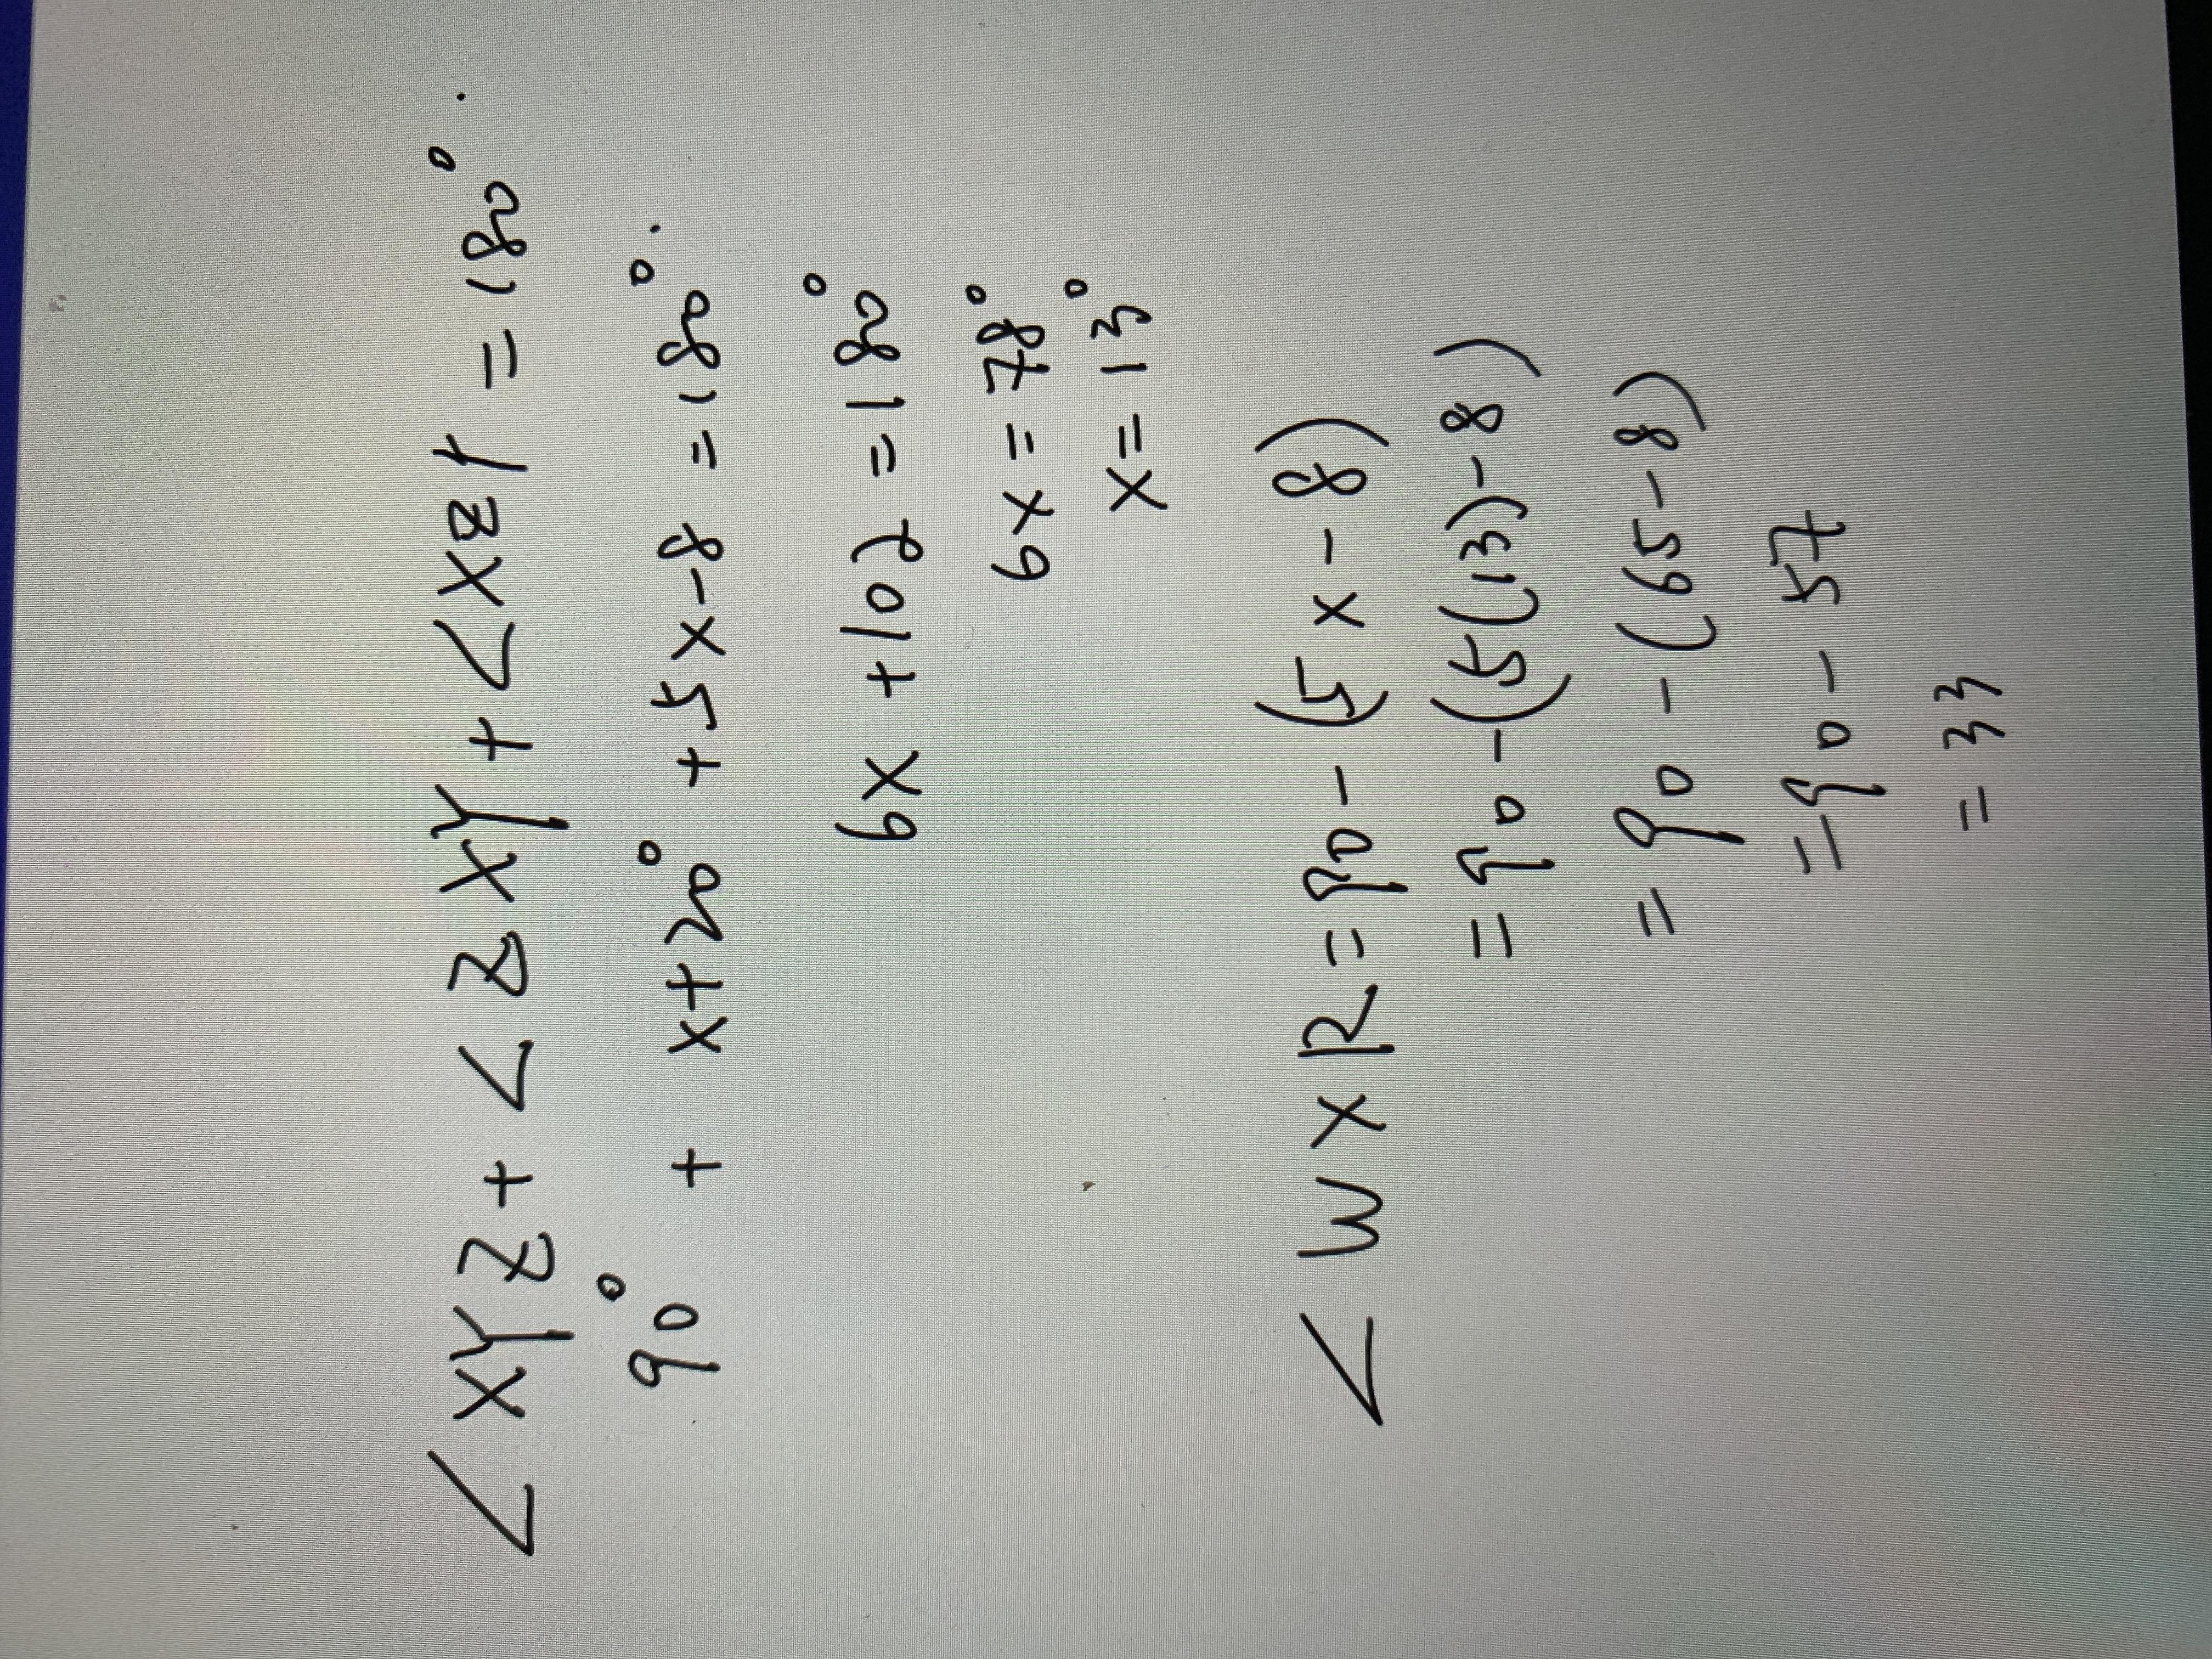 ∠XYZ + ∠ZXY + ∠XZY = 180°.
90° + x+20° + 5x-8 = 180°.
6x + 102 = 180°
6x = 78°
x = 13°
∠WXR = 90 - (5x - 8)
= 90 - (5(13) - 8)
= 90 - (65 - 8)
= 90 - 57
= 33